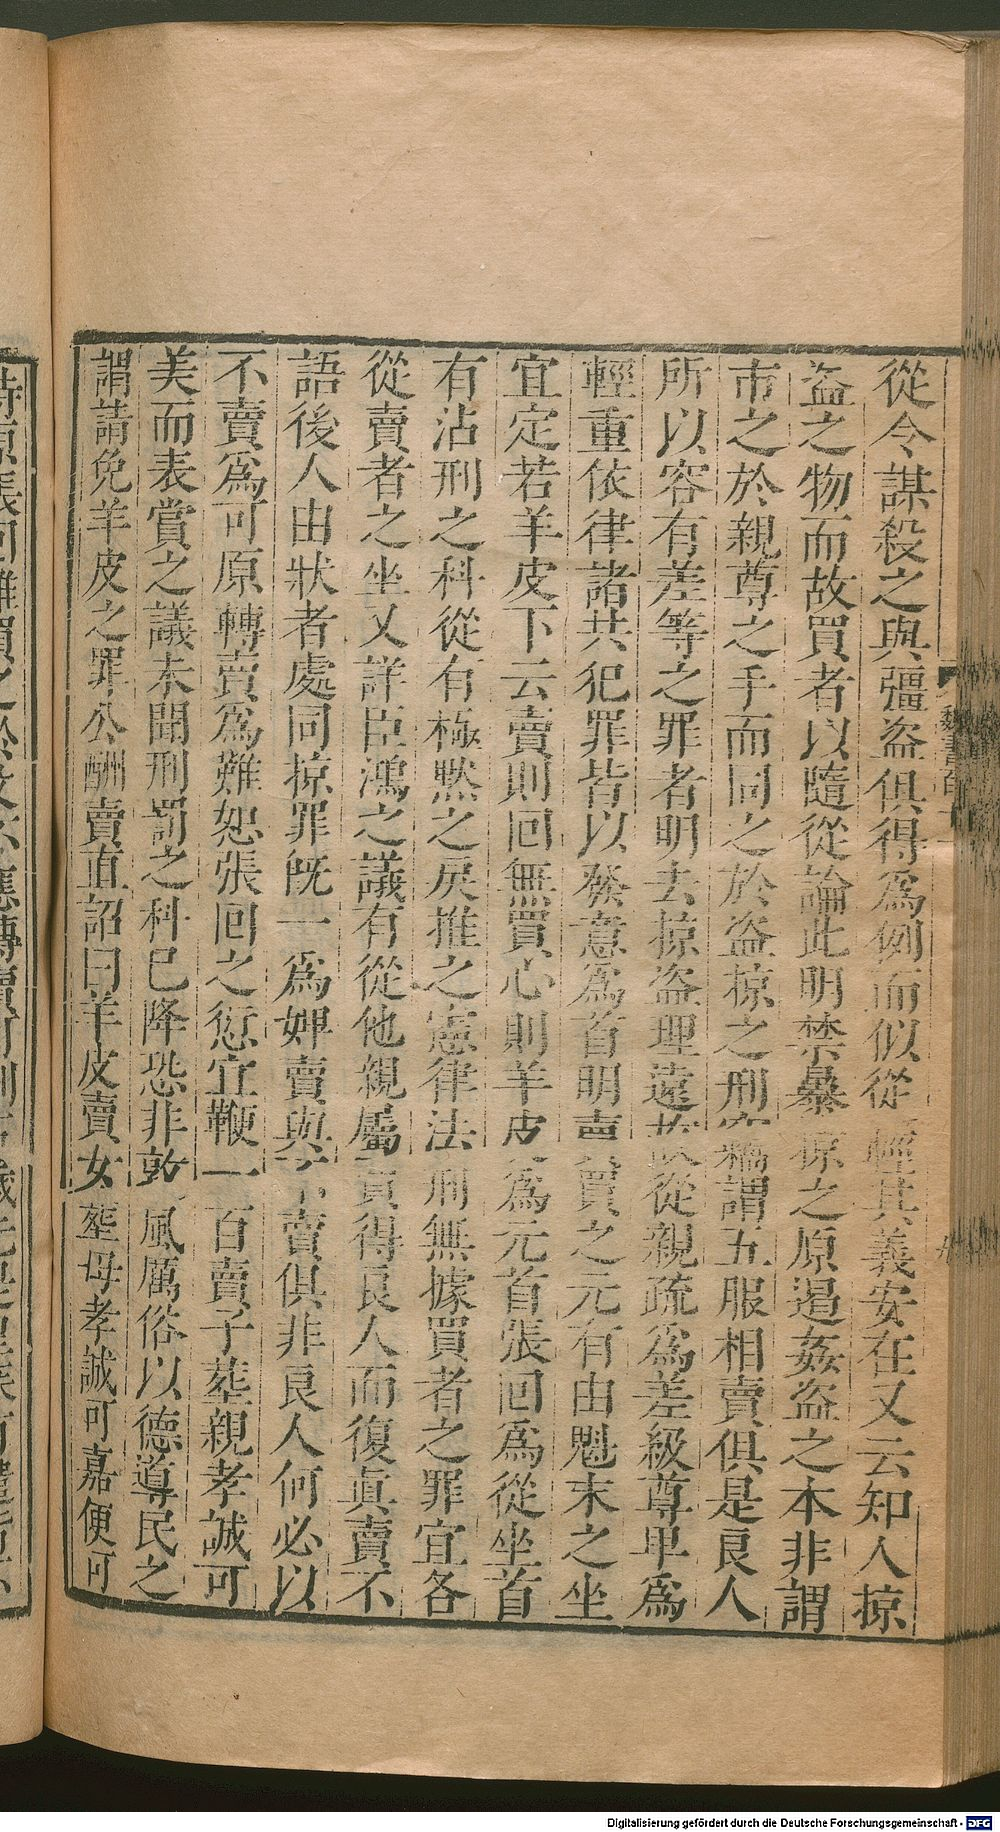 從令謀殺之與彊盜俱得爲例而似從輕其義安在又云知人掠
盜之物而故買者以隨從論此明禁暴掠之原遏姦盜之本非謂
市之於親尊之手而同之於盜掠之刑竊謂五服相賣俱是良人
所以容有差等之罪者明去掠盜理遠故從親疏爲差級尊卑爲
輕重依律諸共犯罪皆以發意爲首明賣買之元有由魁末之坐
宜定若羊皮下云賣則回無買心則羊皮爲元首張回爲從坐首
有沾刑之科從有極黙之戾推之憲律法刑無據買者之罪宜各
從賣者之坐又詳臣鴻之議有從他親屬買得良人而復眞賣不
語後人由狀者處同掠罪旣一爲婢賣與不賣俱非良人何必以
不賣爲可原轉賣爲難恕張回之愆宜鞭一百賣子葬親孝誠可
美而表賞之議未聞刑罰之科已降恐非敦風厲俗以德導民之
謂請免羊皮之罪公酬賣直詔曰羊皮賣女葬母孝誠可嘉便可
魏書百十一
Digitalisierung gefördert durch die Deutsche Forschungsgemeinschaft - DFG